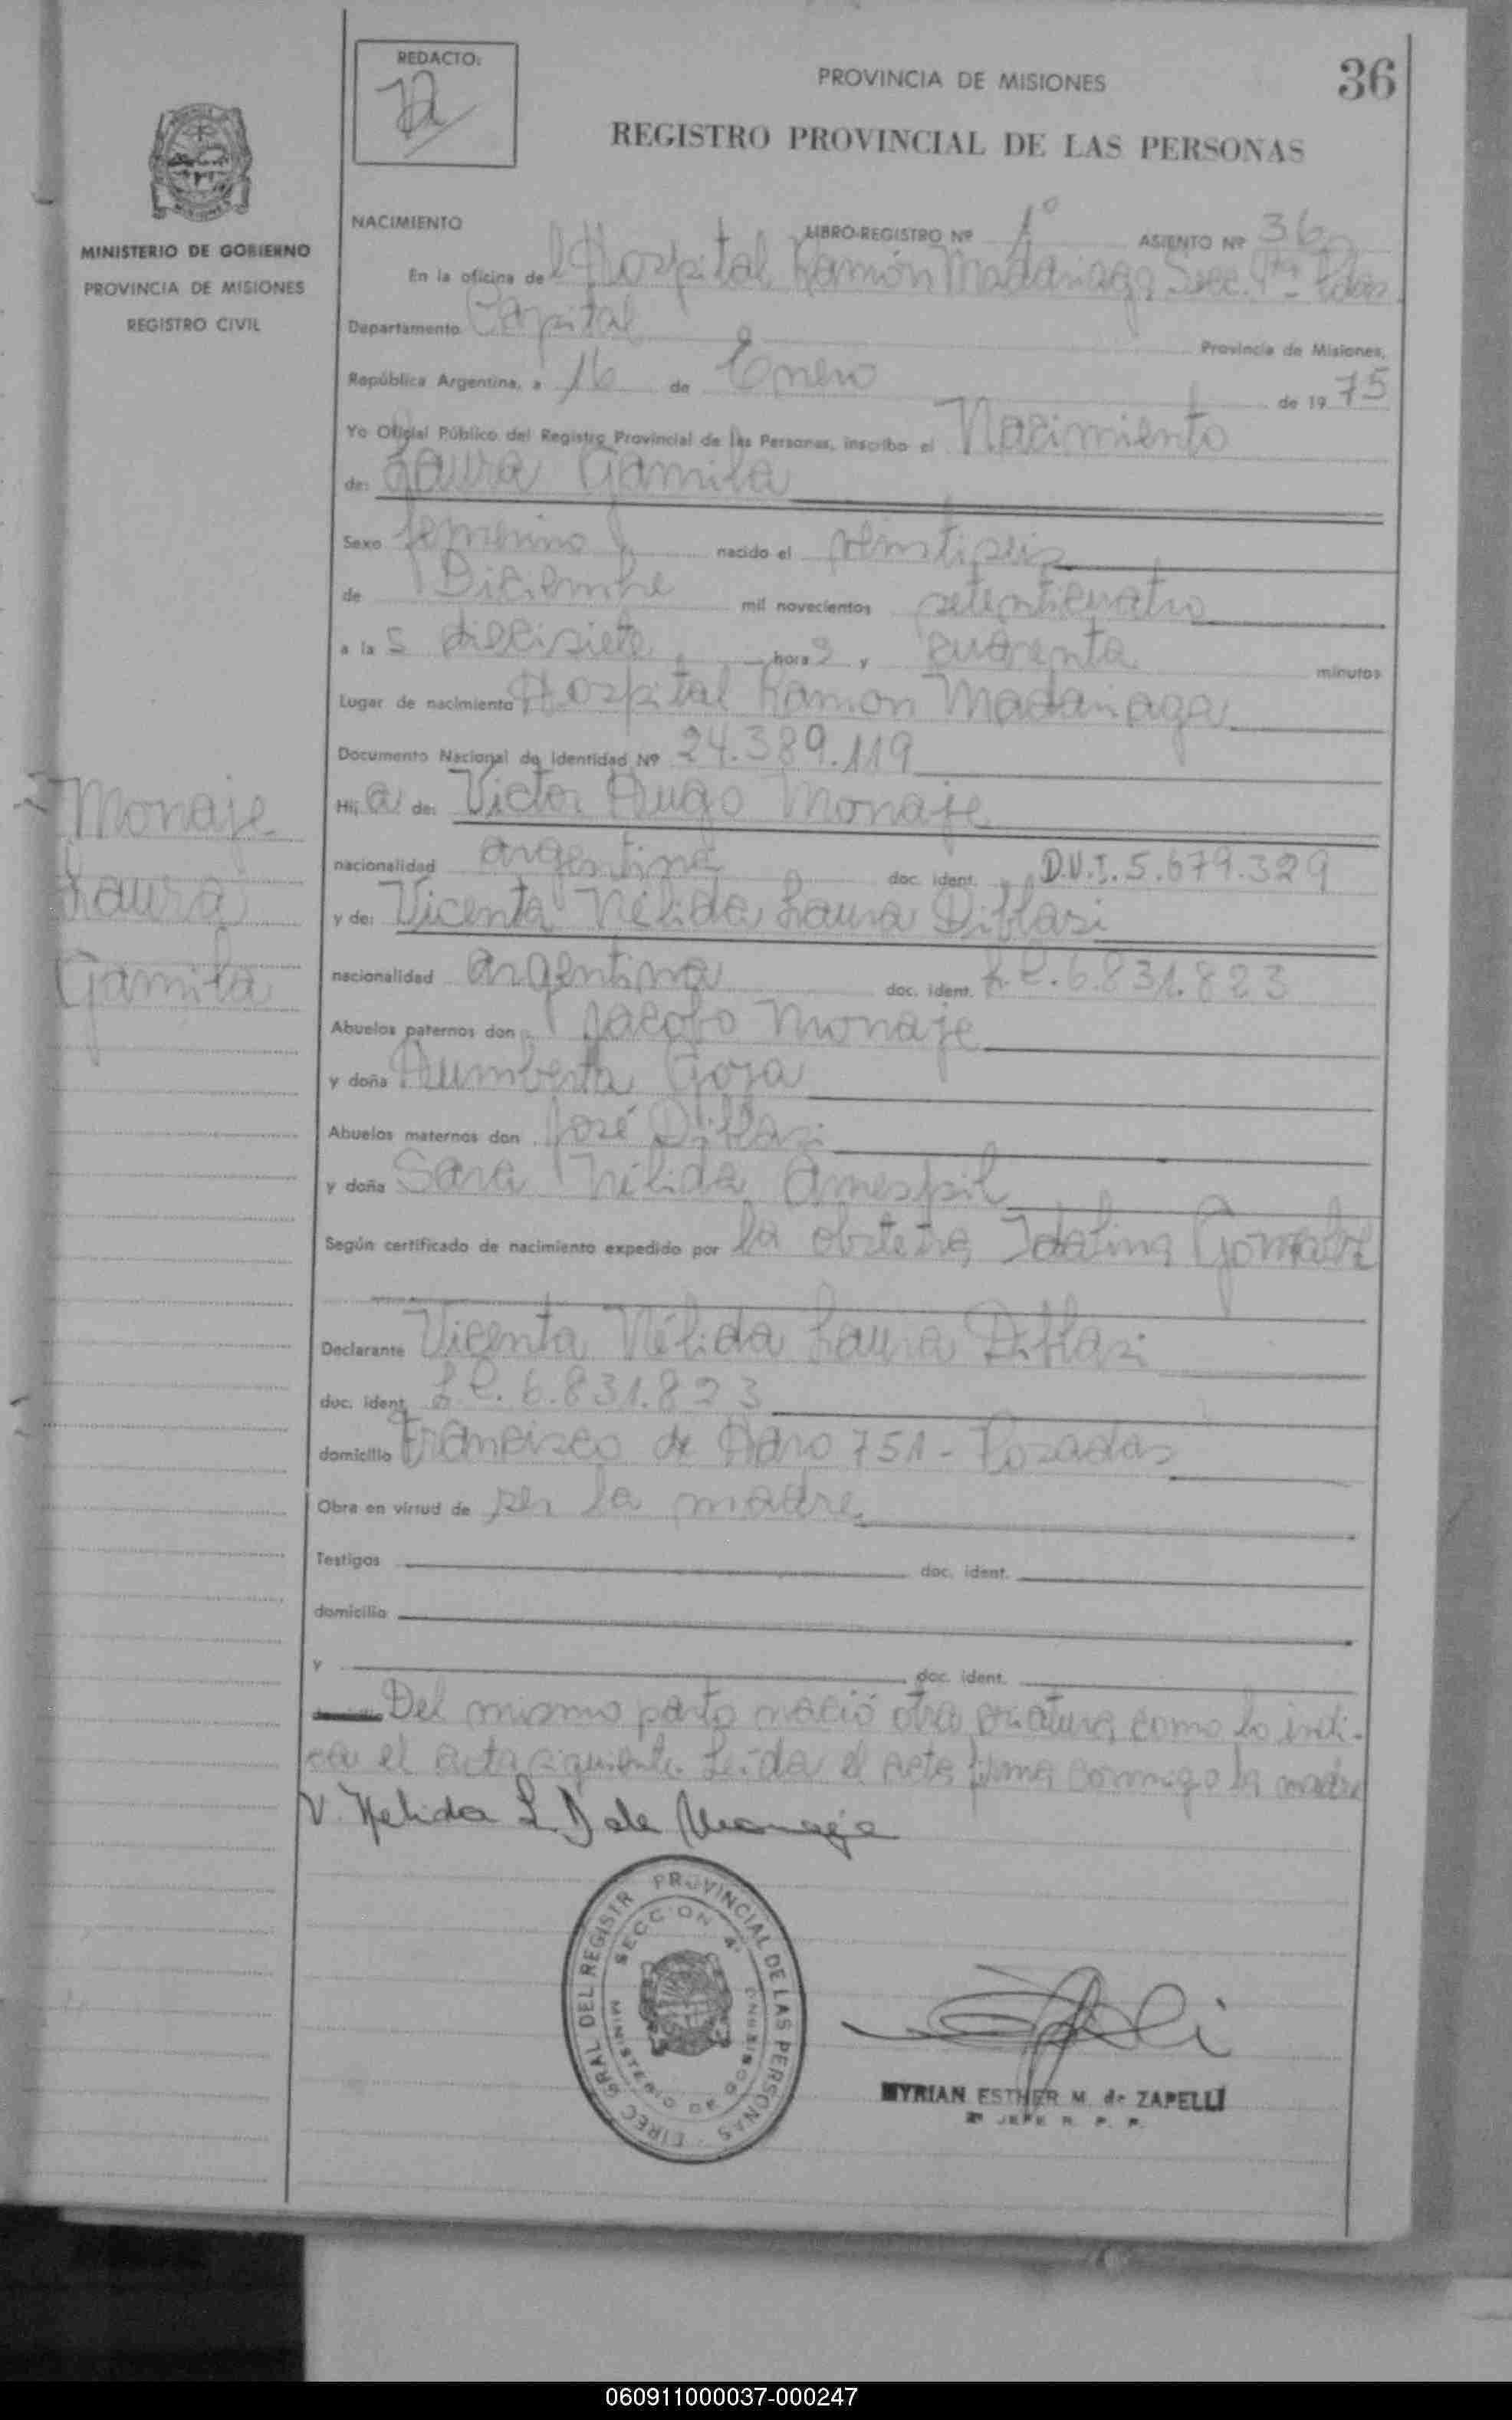 REDACTO:
PROVINCIA DE MISIONES
36
REGISTRO PROVINCIAL DE LAS PERSONAS
MINISTERIO DE GOBIERNO
PROVINCIA DE MISIONES
REGISTRO CIVIL
NACIMIENTO LIBRO-REGISTRO Nº 1º ASIENTO Nº 36
En la oficina del Hospital Ramón Madariaga Secc. 4ta - Pdas.
Departamento Capital Provincia de Misiones,
República Argentina, a 16 de Enero de 1975
Yo Oficial Público del Registro Provincial de las Personas, inscribo el Nacimiento
de: Laura Gamila
Sexo femenino nacido el veintiseis
de Diciembre mil novecientos setenticuatro
a las diecisiete horas y cuarenta minutos
Lugar de nacimiento Hospital Ramon Madariaga
Documento Nacional de Identidad Nº 24.389.119
Hija de: Victor Hugo Monaje
nacionalidad argentina doc. ident. D.N.I. 5.679.329
y de: Vicenta Nélida Laura Diblasi
nacionalidad argentina doc. ident. L.C. 6.831.823
Abuelos paternos don Jacobo Monaje
y doña Humberta
Abuelos maternos don José Diblasi
y doña Sara Nélida Amespil
Según certificado de nacimiento expedido por la obstetra Idalina Gonzalez
Declarante Vicenta Nélida Laura Diblasi
doc. ident. L.C. 6.831.823
domicilio Francisco de Haro 751 - Posadas
Obra en virtud de ser la madre
Testigos doc. ident.
domicilio
y doc. ident.
Del mismo parto nació otra criatura como lo indi-
ca el acta siguiente. Leída el acta firma conmigo la madre
V. Nelida L. D de Monaje
Monaje
Laura
Gamila
DIREC GRAL DEL REGISTR PROVINCIAL DE LAS PERSONAS
SECCION 4ª
MINISTERIO DE GOBIERNO
MYRIAN ESTHER M. de ZAPELLI
JEFE R. P. P.
060911000037-000247